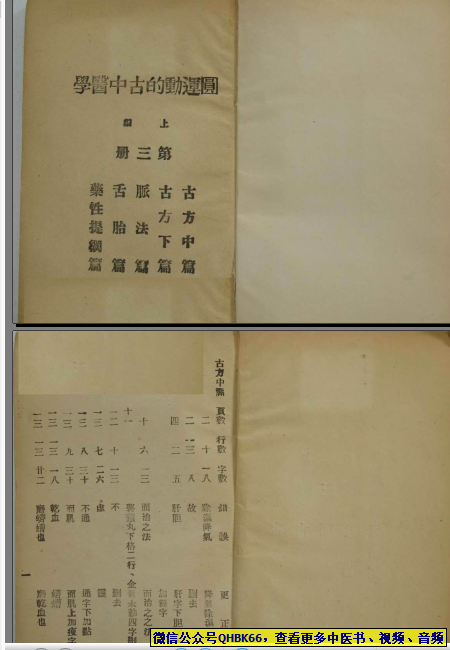 圓運動的古中醫學
上編
第三册
古方中篇
古方下篇
脈法篇
舌胎篇
藥性提綱篇
古方中篇
頁數 行數 字數 錯誤 更正
二 十 一八 除濕降氣 降氣除濕
二 一三 八 故 刪去
四 二 五 肝胆
十 六 一三 而治之法 而治之之法
十一 丸下格二行、金
一二 十 一三 不 刪去
一三 七 二六 虛
一三 八 三十 不通 通字下加點
一三 九 三十 而肌 而肌上加
一三 一三 一八 乾血 蠐螬
一三 一三 廿二 蠐螬也 乾血也
一
微信公众号QHBK66，查看更多中医书、视频、音频